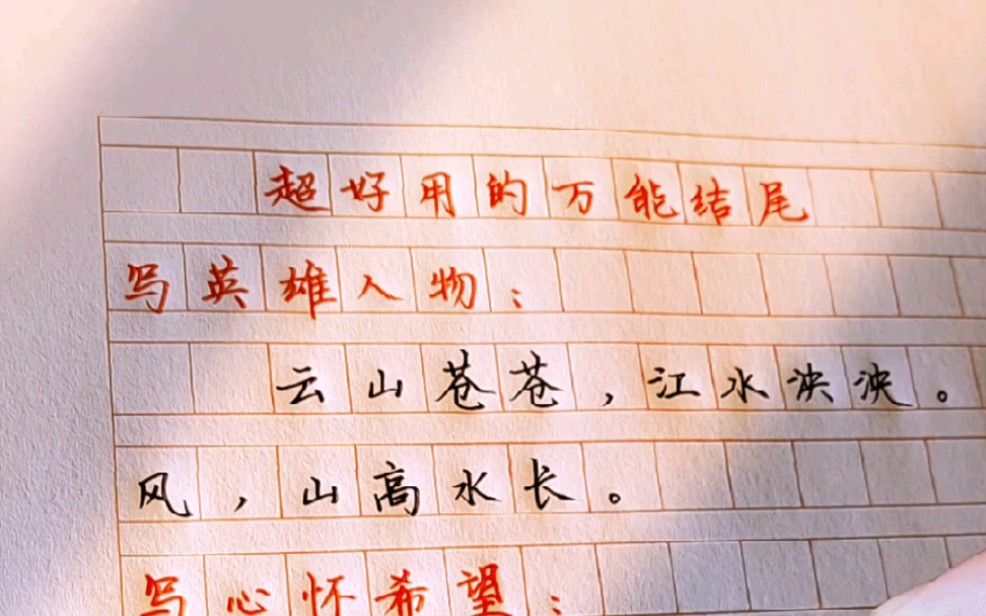 超好用的万能结尾
写英雄人物：
云山苍苍，江水泱泱。
风，山高水长。
写心怀希望：